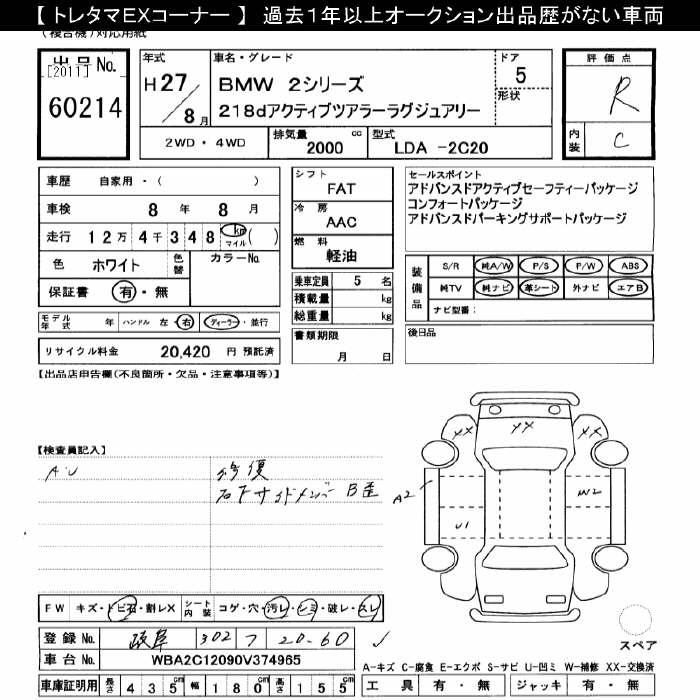 【 トレタマEXコーナー 】 過去1年以上オークション出品歴がない車両
(複合機)対応用紙
出品No.
[2011]
60214
年式
H27/8月
車名・グレード
BMW 2シリーズ
218dアクティブツアラーラグジュアリー
ドア
5
形状
評価点
R
内装
C
2WD・4WD
排気量
2000 cc
型式
LDA -2C20
車歴 自家用・( )
車検 8 年 8 月
走行 12万4千348 km マイル ( )
色 ホワイト 色替 カラーNo.
保証書 有・無
モデル年式 年 ハンドル 左 右 ディーラー・並行
リサイクル料金 20,420 円 預託済
シフト
FAT
冷房
AAC
燃料
軽油
乗車定員 5 名
積載量 kg
総重量 kg
書類期限
月 日
セールスポイント
アドバンスドアクティブセーフティーパッケージ
コンフォートパッケージ
アドバンスドパーキングサポートパッケージ
装備品
S/R 純A/W P/S P/W ABS
純TV 純ナビ 革シート 外ナビ エアB
ナビ型番:
後日品
【出品店申告欄(不良箇所・欠品・注意事項等)】
【検査員記入】
A・U
修復
右下サイドメンバー B歪
XX
XX
XX
A2
W2
U1
スペア
FW キズ・トビ石・割レX シート内装 コゲ・穴・汚レ・シミ・破レ・スレ
登録No. 岐阜 302 フ 20-60
車台No. WBA2C12090V374965
車庫証明用 長さ 435cm 幅 180cm 高さ 155cm
A-キズ C-腐食 E-エクボ S-サビ U-凹ミ W-補修 XX-交換済
工具 有・無 ジャッキ 有・無